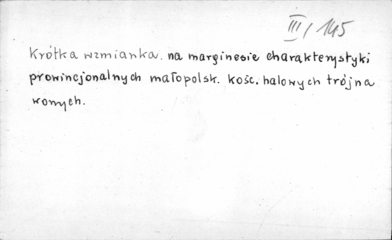 III/145
Krótka wzmianka. na marginesie charakterystyki
prowincjonalnych małopolsk. kość. halowych trójna
wowych.